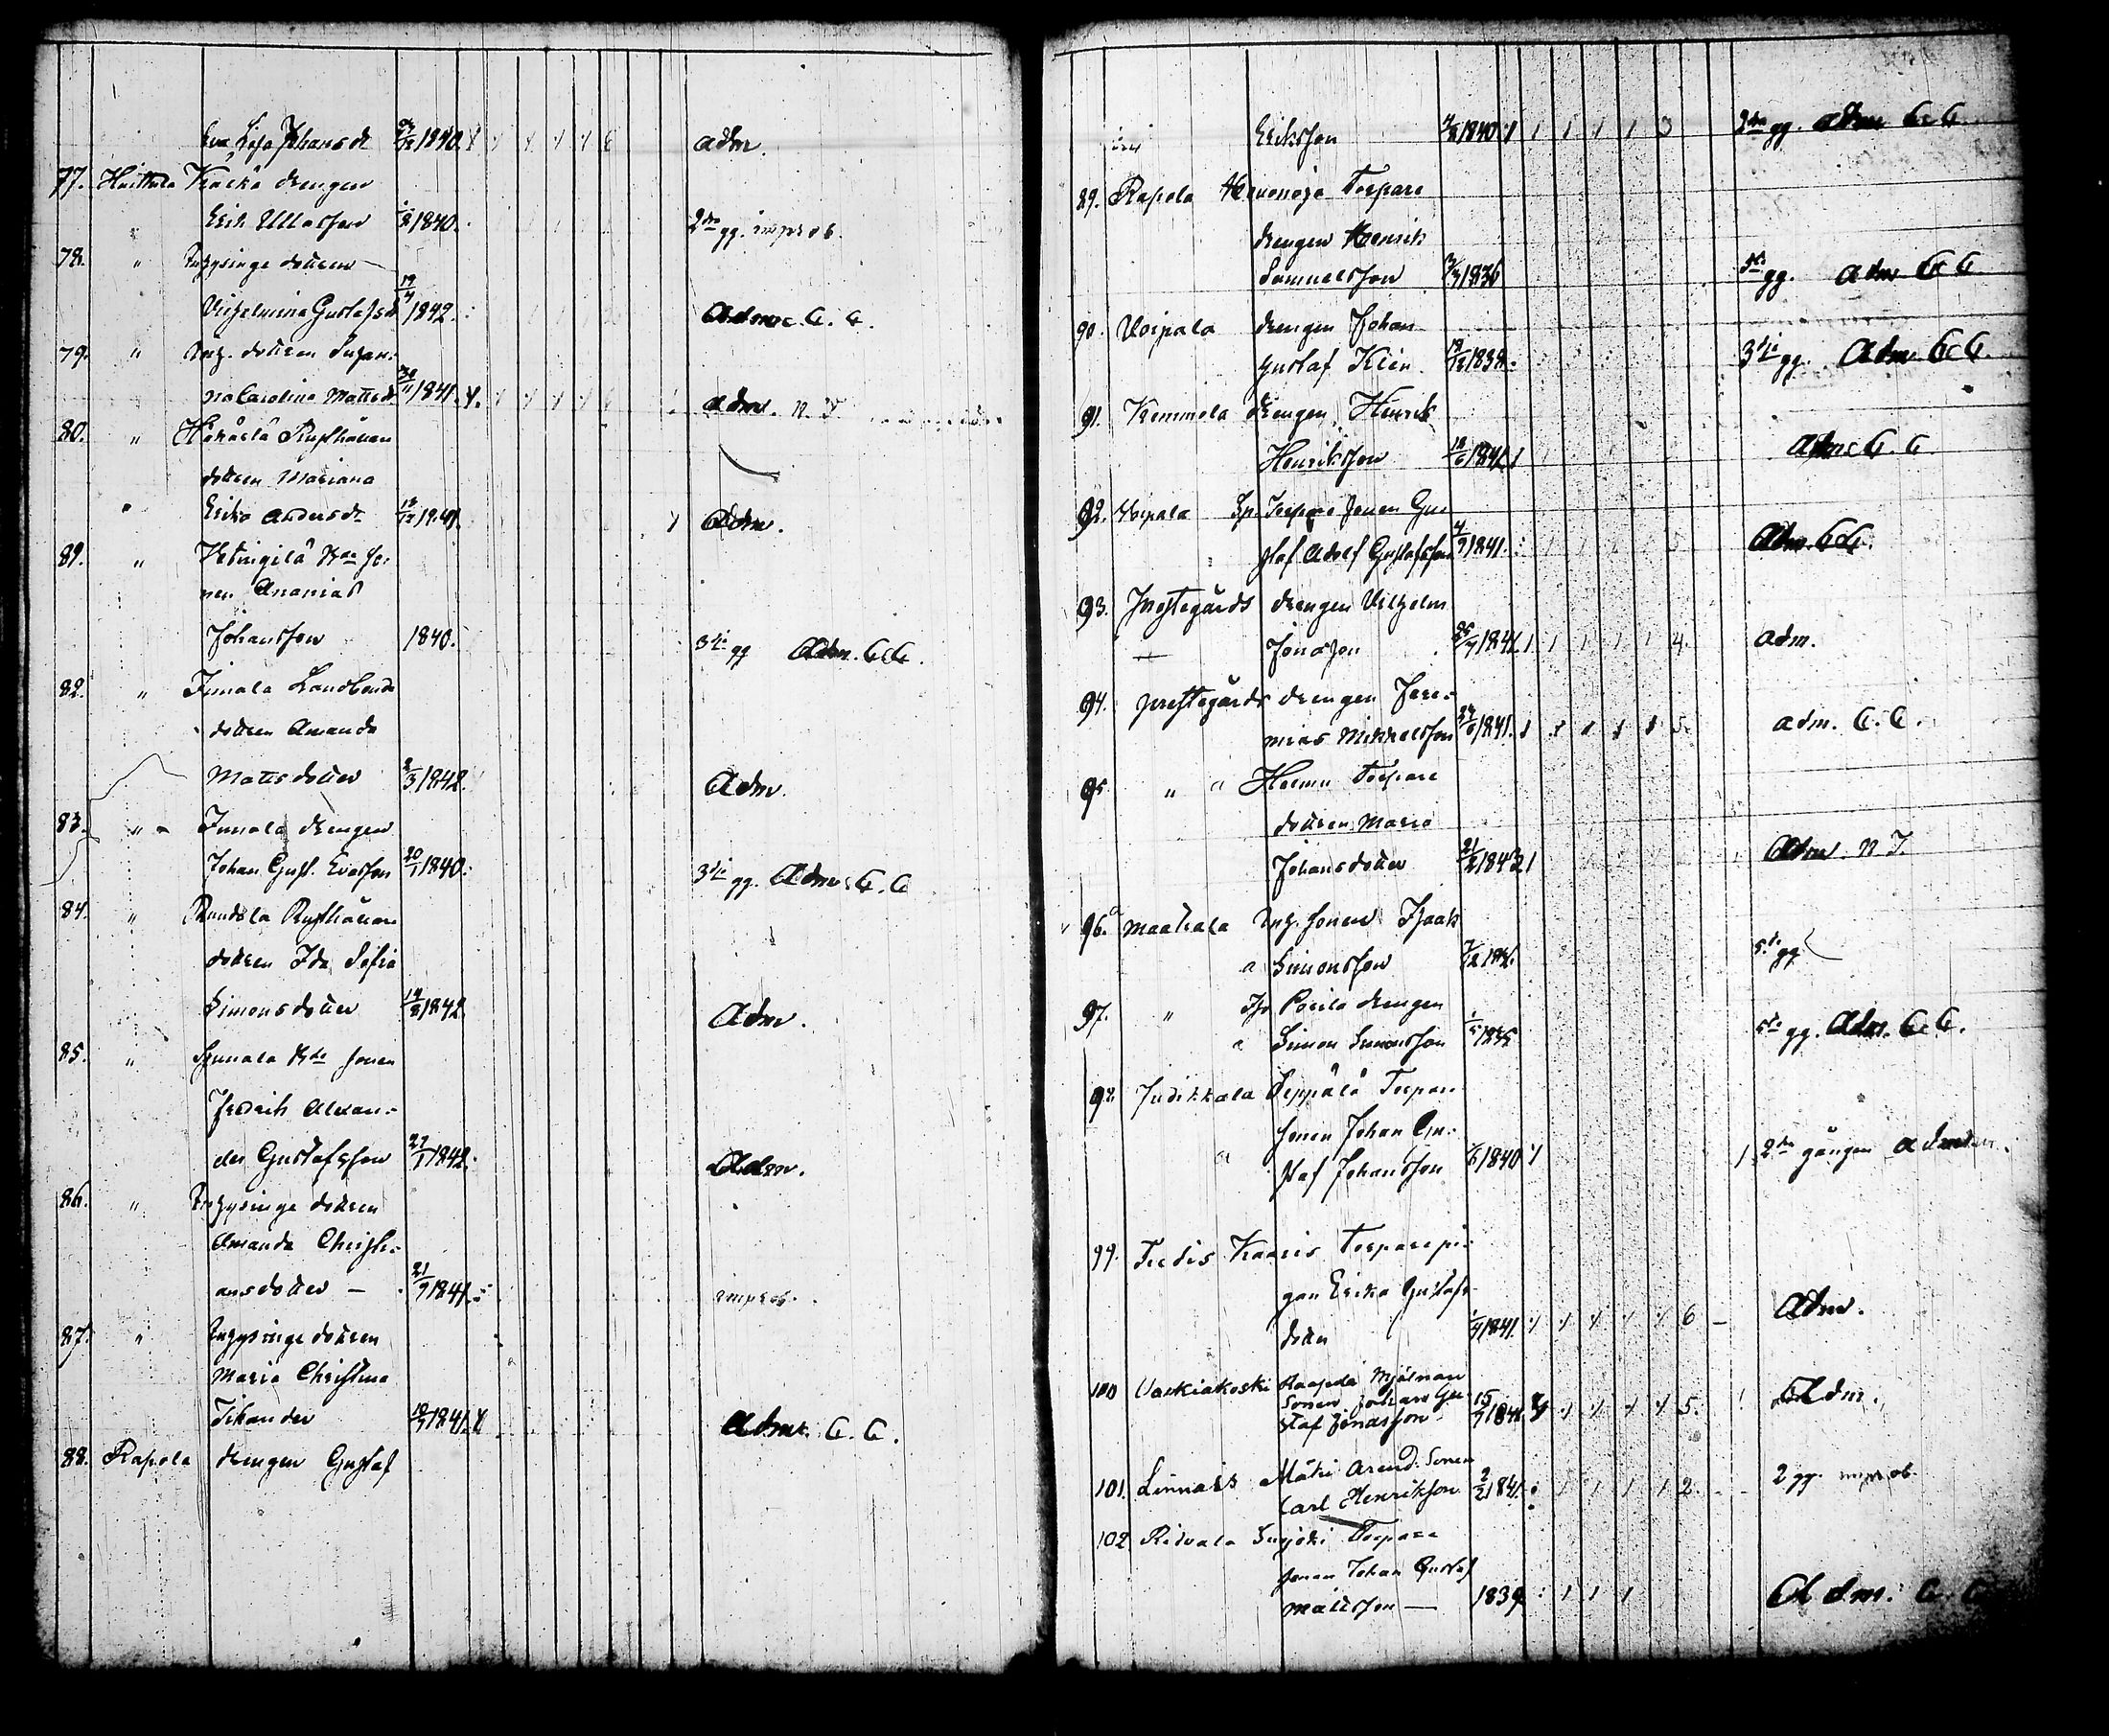 Eva Lisa Johansdr 1840. 6 adm.
77. Huittula Kaska drengen
Erik Ullasson 1840. 2dra gg. improb.
78. " Inhysinge dottren
Vilhelmina Gustafsdr 19/4 1842. Adm. C. C.
79. " Inh. dottren Susan-
na Carolina Mattsdr 30/11 1841. adm. n. T.
80. " Rusthållan
dottren Mariana
Erika Andersdr 13/12 1841. 1 Adm.
81. " So-
nen Ananias
Johansson 1840. 3die gg Adm. C.C.
82. " Junala Landbonde
dottren Amanda
Mattsdotter 2/3 1842. Adm.
83. " Junala drengen
Johan Gust. Evasson 20/1 1840. 3die gg. Adm. C. C
84. " Rusthållare
dottren Ida Sofia
Simonsdotter 14/8 1842. Adm.
85. " Junala sonen
Fredrik Alexan-
der Gustafsson 27/1 1842. Adm.
86. " Inhysinge dottren
Amanda Christi-
ansdotter — 21/9 1841. improb.
87. " Inhysinge dottren
Maria Christina
Tikander 18/7 1841. Adm. C. C.
88. Rapola drengen Gustaf
Eriksson 4/8 1840 1 1 1 1 1 3 3die gg. adm C. C.
89. Rapola Hevonoja Torpare
drengen Henrik
Samuelsson 1836 5te gg. adm C C
90. Voipala drengen Johan
Gustaf Klen. 19/12 1838. 3die gg. Adm. C C.
91. Kemmola drengen Henrik
Henriksson 18/6 1841 Adm C. C.
92. Voipala Torpare sonen Gus
staf Adolf Gustafsson 4/9 1841. Adm. C C.
93. Prestegårds drengen Vilhelm
Jonasson 25/7 1841 1 1 1 1 4. adm.
94. prestegårds drengen Jere-
mias Mikkelsson 24/6 1841. 5. adm. C. C.
95 " " Torpare
dottren Maria
Johansdotter 21/2 1842 Adm. n. T.
96. Maatiala Inh. sonen Isaak
a Simonsson 5te gg
97. " Porila drengen
a Simon Simonsson 1/5 1835 5te gg. Adm. C. C.
98. Judikkala Seppälä Torpare
sonen Johan Gu-
staf Johansson 1840 1 2dra gången adm
99. Tredis Kaaris Torpare pi-
gan Erika Gustafs
dotter 1841. 6 — Adm.
100 Valkiakoski Mjölnare
Sonen Johan Gu-
staf Jonasson 15/7 184 5. Adm.
101. Linnais Mäki arend. Sonen
Carl Henriksson 2/2 1841. 1 1 1 1 2. 2 gg. improb.
102 Ritvala Torpare
sonen Johan Gustaf
Mattsson — 1839 1 1 1 Adm. C. C